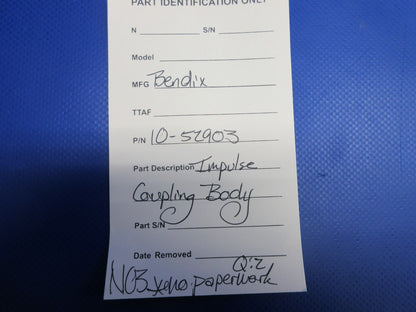 PART IDENTIFICATION ONLY
N S/N
Model
MFG Bendix
TTAF
P/N 10-52903
Part Description Impulse
Coupling Body
Part S/N
Date Removed
Q:2
NCB paperwork